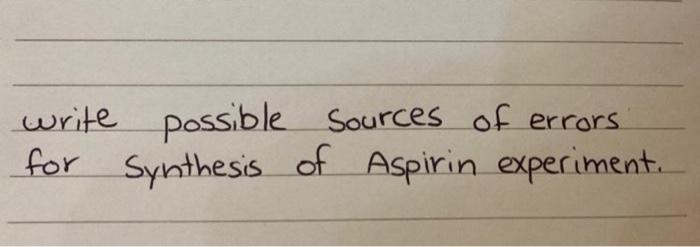 write possible Sources of errors
for Synthesis of Aspirin experiment.